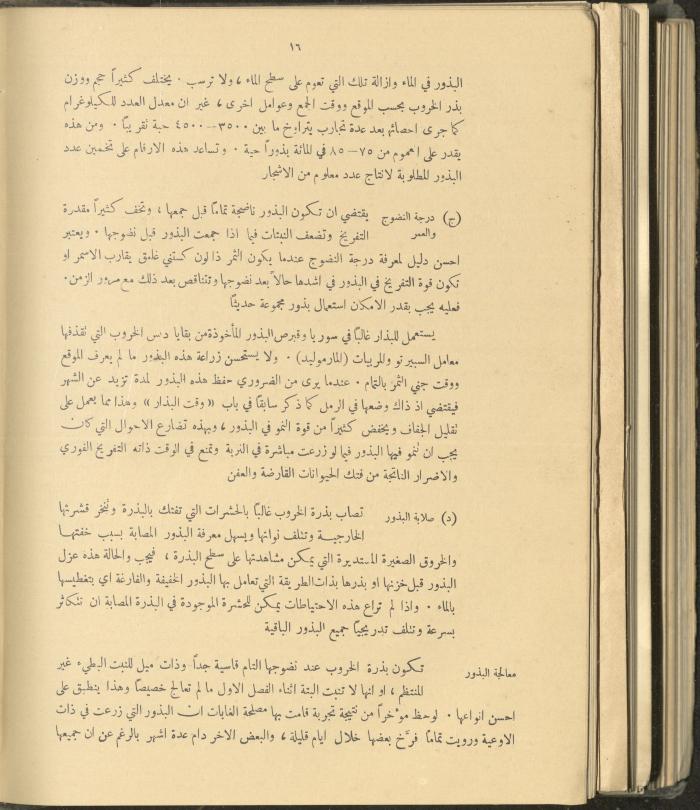 ١٦
البذور في الماء وازالة تلك التي تعوم على سطح الماء ، ولا ترسب . يختلف كثيراً حجم ووزن
بذر الخروب بحسب الموقع ووقت الجمع وعوامل اخرى ، غير ان معدل العدد للكيلوغرام
كما جرى احصائها بعد عدة تجارب يتراوح ما بين ٣٥٠٠-٤٥٠٠ حبة تقريبًا . ومن هذه
يقدر على العموم من ٧٥-٨٥ في المائة بذوراً حية . وتساعد هذه الارقام على تخمين عدد
البذور المطلوبة لانتاج عدد معلوم من الاشجار
(ج) درجة النضوج والعمر
يقتضي ان تكون البذور ناضجة تمامًا قبل جمعها ، وتخف كثيراً مقدرة
التفريخ وتضعف النبتات فيما اذا جمعت البذور قبل نضوجها . ويعتبر
احسن دليل لمعرفة درجة النضوج عندما يكون الثمر ذا لون كستني غامق يقارب الاسمر او
تكون قوة التفريخ في البذور في اشدها حالاً بعد نضوجها وتتناقص بعد ذلك مع مرور الزمن .
فعليه يجب بقدر الامكان استعمال بذور مجموعة حديثًا
يستعمل للبذار غالبًا في سوريا وقبرص البذور المأخوذة من بقايا دبس الخروب التي تقذفها
معامل السبيرتو والمربيات (المارموليد) . ولا يستحسن زراعة هذه البذور ما لم يعرف الموقع
ووقت جني الثمر بالتمام . عندما يرى من الضروري حفظ هذه البذور لمدة تزيد عن الشهر
فيقتضي اذ ذاك وضعها في الرمل كما ذكر سابقًا في باب « وقت البذار » وهذا مما يعمل على
تقليل الجفاف ويخفض كثيراً من قوة النمو في البذور ، وبهذه تضارع الاحوال التي كان
يجب ان تنمو فيها البذور فيما لو زرعت مباشرة في التربة وتمنع في الوقت ذاته التفريخ الفوري
والاضرار الناتجة من فتك الحيوانات القارضة والعفن
(د) صلابة البذور
تصاب بذرة الخروب غالبًا بالحشرات التي تفتك بالبذرة وتنخر قشرتها
الخارجية وتتلف نواتها ويسهل معرفة البذور المصابة بسبب خفتها
والخروق الصغيرة المستديرة التي يمكن مشاهدتها على سطح البذرة ، فيجب والحالة هذه عزل
البذور قبل خزنها او بذرها بذات الطريقة التي تعامل بها البذور الخفيفة والفارغة اي بتغطيسها
بالماء . واذا لم تراع هذه الاحتياطات يمكن للحشرة الموجودة في البذرة المصابة ان تتكاثر
بسرعة وتتلف تدريجيًا جميع البذور الباقية
معالجة البذور
تكون بذرة الخروب عند نضوجها التام قاسية جداً وذات ميل للنبت البطيء غير
المنتظم ، او انها لا تنبت البتة اثناء الفصل الاول ما لم تعالج خصيصًا وهذا ينطبق على
احسن انواعها . لوحظ مؤخراً من نتيجة تجربة قامت بها مصلحة الغابات ان البذور التي زرعت في ذات
الاوعية ورويت تمامًا فرّخ بعضها خلال ايام قليلة ، والبعض الاخر دام عدة اشهر بالرغم عن ان جميعها